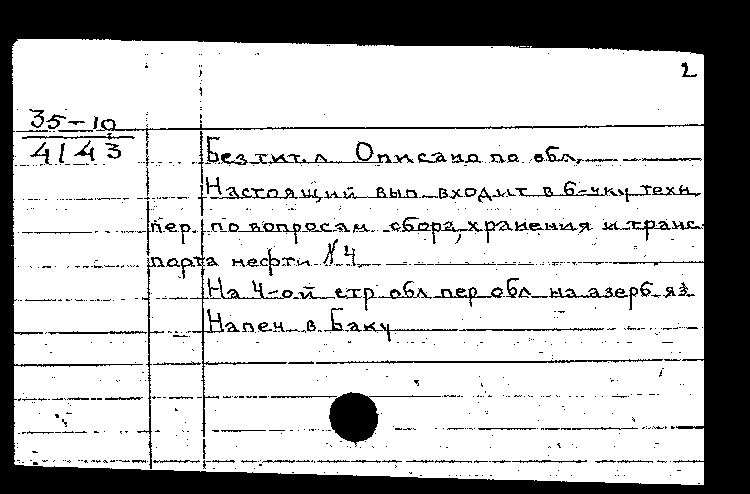 2
35-10
4143
Без тит. л. Описано по обл.
Настоящий вып. входит в б-чку техн.
пер. по вопросам сбора, хранения и транс-
порта нефти №4
На 4-ой стр обл пер обл на азерб яз.
Напеч. в Баку